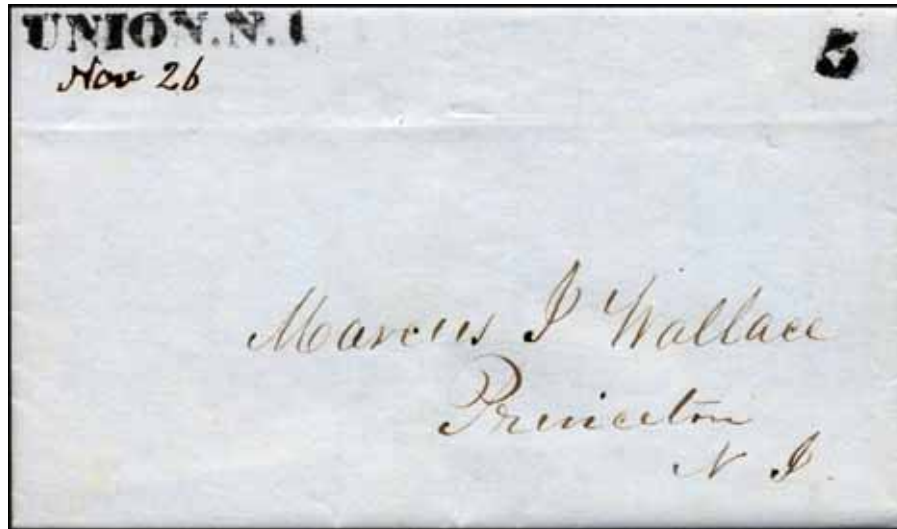 UNION.N.J
5
Nov 26
Marcus J Wallace
Princeton
N J.